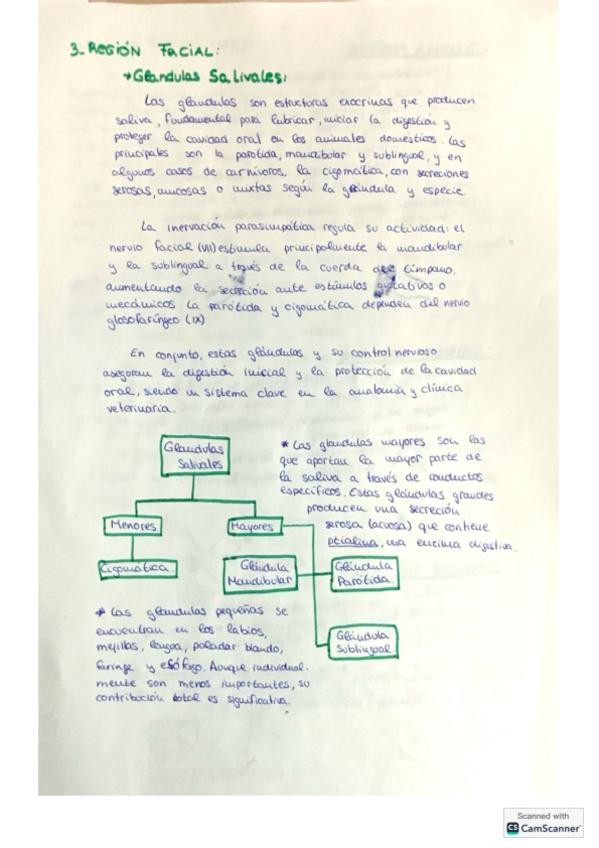 3- REGIÓN FACIAL:
→ Glándulas Salivales:
Las glándulas son estructuras exocrinas que producen
saliva, fundamental para lubricar, iniciar la digestión y
proteger la cavidad oral en los animales domésticos. Las
principales son la parótida, mandibular y sublingual, y en
algunos casos de carnívoros, la cigomática, con secreciones
serosas, mucosas o mixtas según la glándula y especie.
La inervación parasimpática regula su actividad: el
nervio facial (VII) estimula principalmente la mandibular
y la sublingual a través de la cuerda del tímpano,
aumentando la secreción ante estímulos gustativos o
mecánicos la parótida y cigomática dependen del nervio
glosofaríngeo (IX)
En conjunto, estas glándulas y su control nervioso
aseguran la digestión inicial y la protección de la cavidad
oral, siendo un sistema clave en la anatomía y clínica
veterinaria.
Glándulas
Salivales
Menores
Mayores
Cigomática
Glándula
Mandibular
Glándula
Parótida
Glándula
Sublingual
* Las glándulas mayores son las
que aportan la mayor parte de
la saliva a través de conductos
específicos. Estas glándulas grandes
producen una secreción
serosa (acuosa) que contiene
ptialina, una enzima digestiva.
* Las glándulas pequeñas se
encuentran en los labios,
mejillas, lengua, paladar blando,
faringe y esófago. Aunque individual-
mente son menos importantes, su
contribución total es significativa.
Scanned with
CS CamScanner